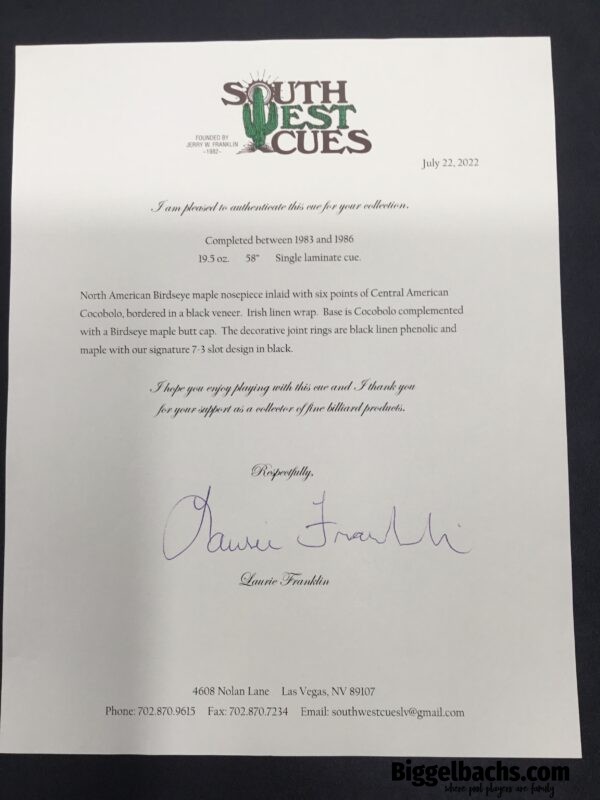 SOUTH
WEST
CUES
FOUNDED BY
JERRY W. FRANKLIN
~1982~
July 22, 2022
I am pleased to authenticate this cue for your collection.
Completed between 1983 and 1986
19.5 oz. 58" Single laminate cue.
North American Birdseye maple nosepiece inlaid with six points of Central American
Cocobolo, bordered in a black veneer. Irish linen wrap. Base is Cocobolo complemented
with a Birdseye maple butt cap. The decorative joint rings are black linen phenolic and
maple with our signature 7-3 slot design in black.
I hope you enjoy playing with this cue and I thank you
for your support as a collector of fine billiard products.
Respectfully,
Laurie Franklin
Laurie Franklin
4608 Nolan Lane Las Vegas, NV 89107
Phone: 702.870.9615 Fax: 702.870.7234 Email: southwestcueslv@gmail.com
Biggelbachs.com
where pool players are family